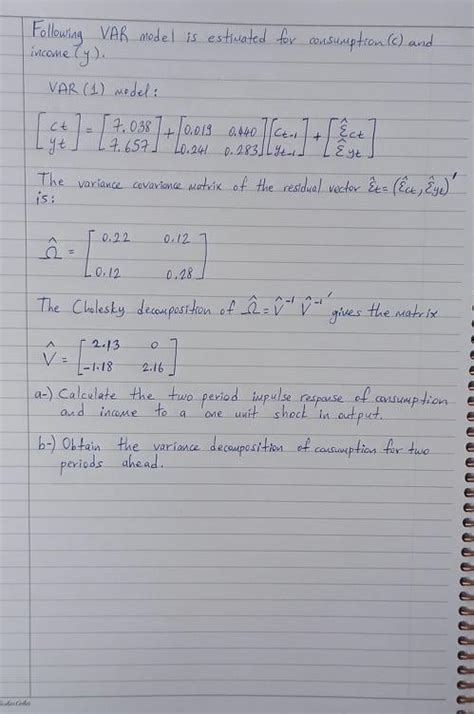 Following VAR model is estimated for consumption (c) and
income (y).
VAR (1) model:
[ct yt] = [7.038 7.657] + [0.019 0.440 0.241 0.283] [ct-1 yt-1] + [ε̂ct ε̂yt]
The variance covariance matrix of the residual vector ε̂t = (ε̂ct, ε̂yt)'
is:
Ω̂ = [0.22 0.12 0.12 0.28]
The Cholesky decomposition of Ω̂ = V̂⁻¹ V̂⁻¹' gives the matrix
V̂ = [2.13 0 -1.18 2.16]
a-) Calculate the two period impulse response of consumption
and income to a one unit shock in output.
b-) Obtain the variance decomposition of consumption for two
periods ahead.